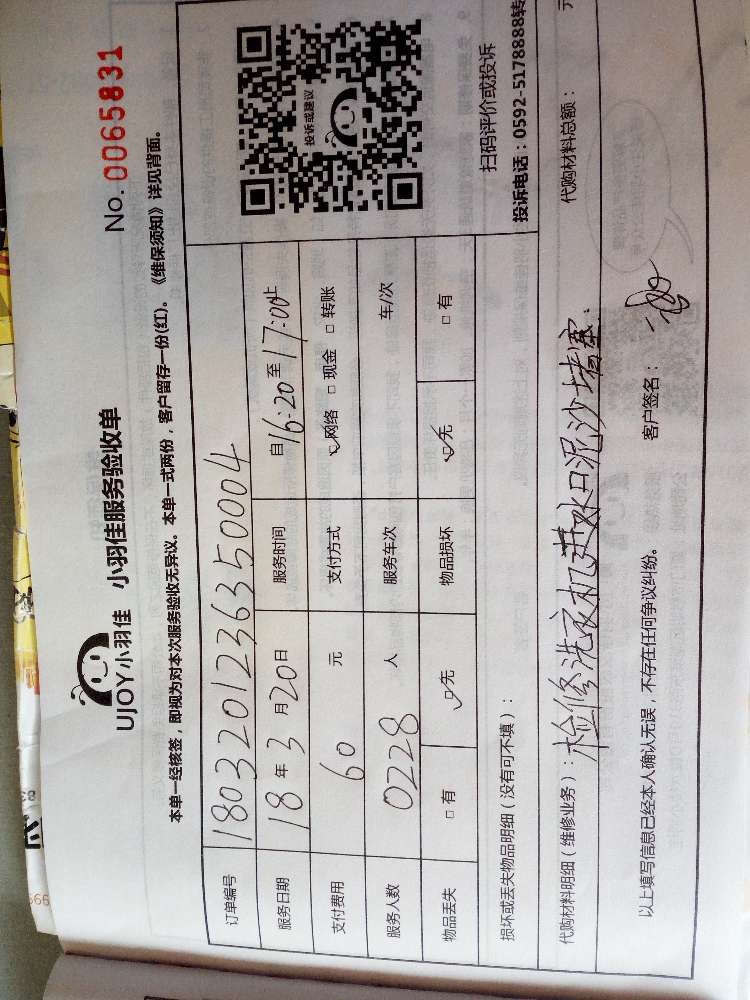 UJOY小羽佳 小羽佳服务验收单
No. 0065831
本单一经核签，即视为对本次服务验收无异议。本单一式两份，客户留存一份(红)。《维保须知》详见背面。
订单编号 1803201236350004
服务日期 18年3月20日 服务时间 自16:20至17:00止
支付费用 60元 支付方式 ☑网络 □现金 □转账
服务人数 0228人 服务车次 车/次
物品丢失 □有 ☑无 物品损坏 ☑无 □有
投诉或建议
扫码评价或投诉
投诉电话：0592-5178888转
损坏或丢失物品明细（没有可不填）：
代购材料明细（维修业务）：检修洗衣机进水口泥沙堵塞.
代购材料总额： 元
以上填写信息已经本人确认无误，不存在任何争议纠纷。 客户签名：